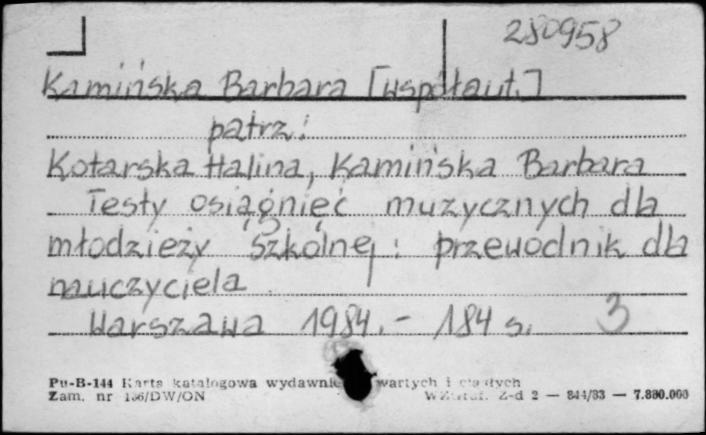 280958
Kamińska Barbara [współaut.]
patrz:
Kotarska Halina, Kamińska Barbara
Testy osiągnięć muzycznych dla
młodzieży szkolnej : przewodnik dla
nauczyciela
Warszawa 1984. - 184 s. 3
Pu-B-144 Karta katalogowa wartych i
Zam. nr 136/DW/ON Z-d 2 — 844/83 — 7.800.000